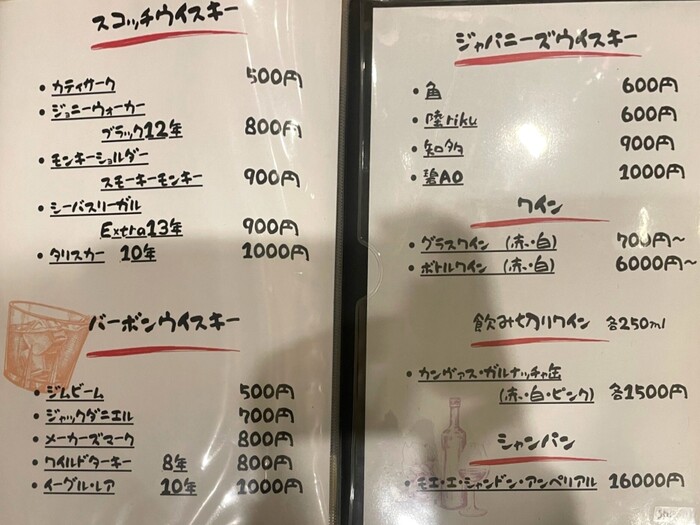 スコッチウイスキー
・カティサーク 500円
・ジョニーウォーカー
ブラック12年 800円
・モンキーショルダー
スモーキーモンキー 900円
・シーバスリーガル
Extra13年 900円
・タリスカー 10年 1000円
バーボンウイスキー
・ジムビーム 500円
・ジャックダニエル 700円
・メーカーズマーク 800円
・ワイルドターキー 8年 800円
・イーグル・レア 10年 1000円
ジャパニーズウイスキー
・角 600円
・陸riku 600円
・知多 900円
・碧AO 1000円
ワイン
・グラスワイン (赤・白) 700円〜
・ボトルワイン (赤・白) 6000円〜
飲み切りワイン 各250ml
・カンヴァス・ガルナッチャ缶
(赤・白・ピンク) 各1500円
シャンパン
・モエ・エ・シャンドン・アンペリアル 16000円